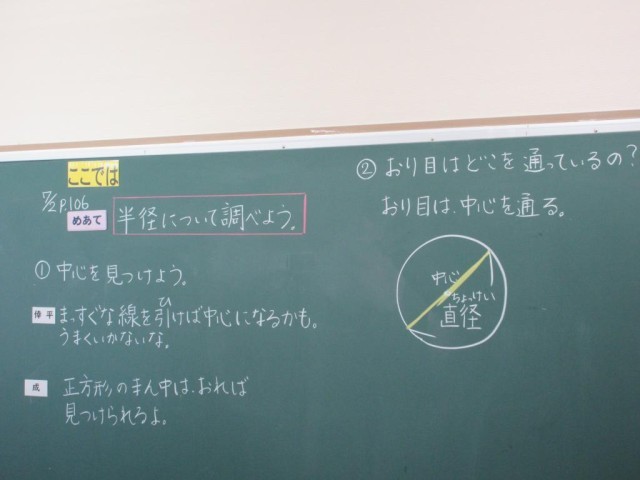 ここでは
P.106
めあて
半径について調べよう。
①中心を見つけよう。
倖平
まっすぐな線を引けば中心になるかも。
ひ
うまくいかないな。
成
正方形のまん中は、おれば
見つけられるよ。
②おり目はどこを通っているの?
おり目は、中心を通る。
中心
ちょっけい
直径